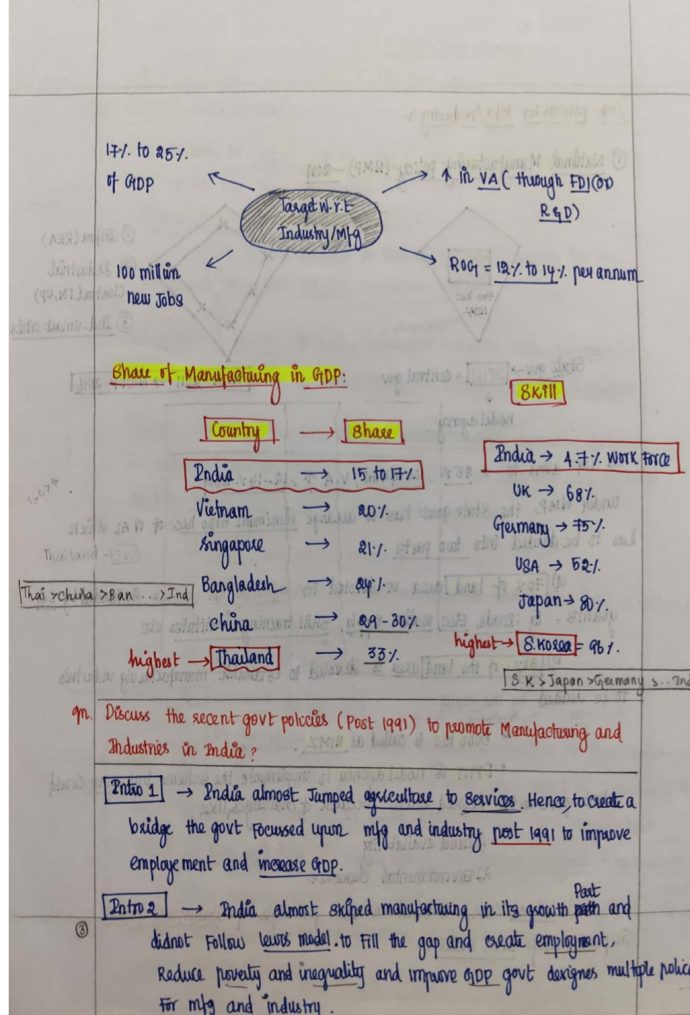 17% to 25%
of GDP
Target w.r.t
Industry/Mfg
↑ in VA ( through FDI (or)
R&D)
100 million
new Jobs
ROG = 12% to 14% per annum
Share of Manufacturing in GDP:
Country → Share
India → 15 to 17%
Vietnam → 20%
Singapore → 21%
Bangladesh → 24%
China → 29-30%
highest → Thailand → 33%
Thai > China > Ban ... > Ind
Skill
India → 4.7% Work Force
UK → 68%
Germany → 75%
USA → 52%
Japan → 80%
highest → S.Korea = 96%
S K > Japan > Germany > ... Ind
Qn. Discuss the recent govt policies (Post 1991) to promote Manufacturing and
Industries in India?
Intro 1 → India almost Jumped agriculture to services. Hence, to create a
bridge the govt Focussed upon mfg and industry post 1991 to improve
employement and increase GDP.
Intro 2 → India almost skiped manufacturing in its growth Part and
didnot Follow lewis model. to Fill the gap and create employment,
Reduce poverty and inequality and improve GDP govt designes multiple polic
For mfg and industry.
③